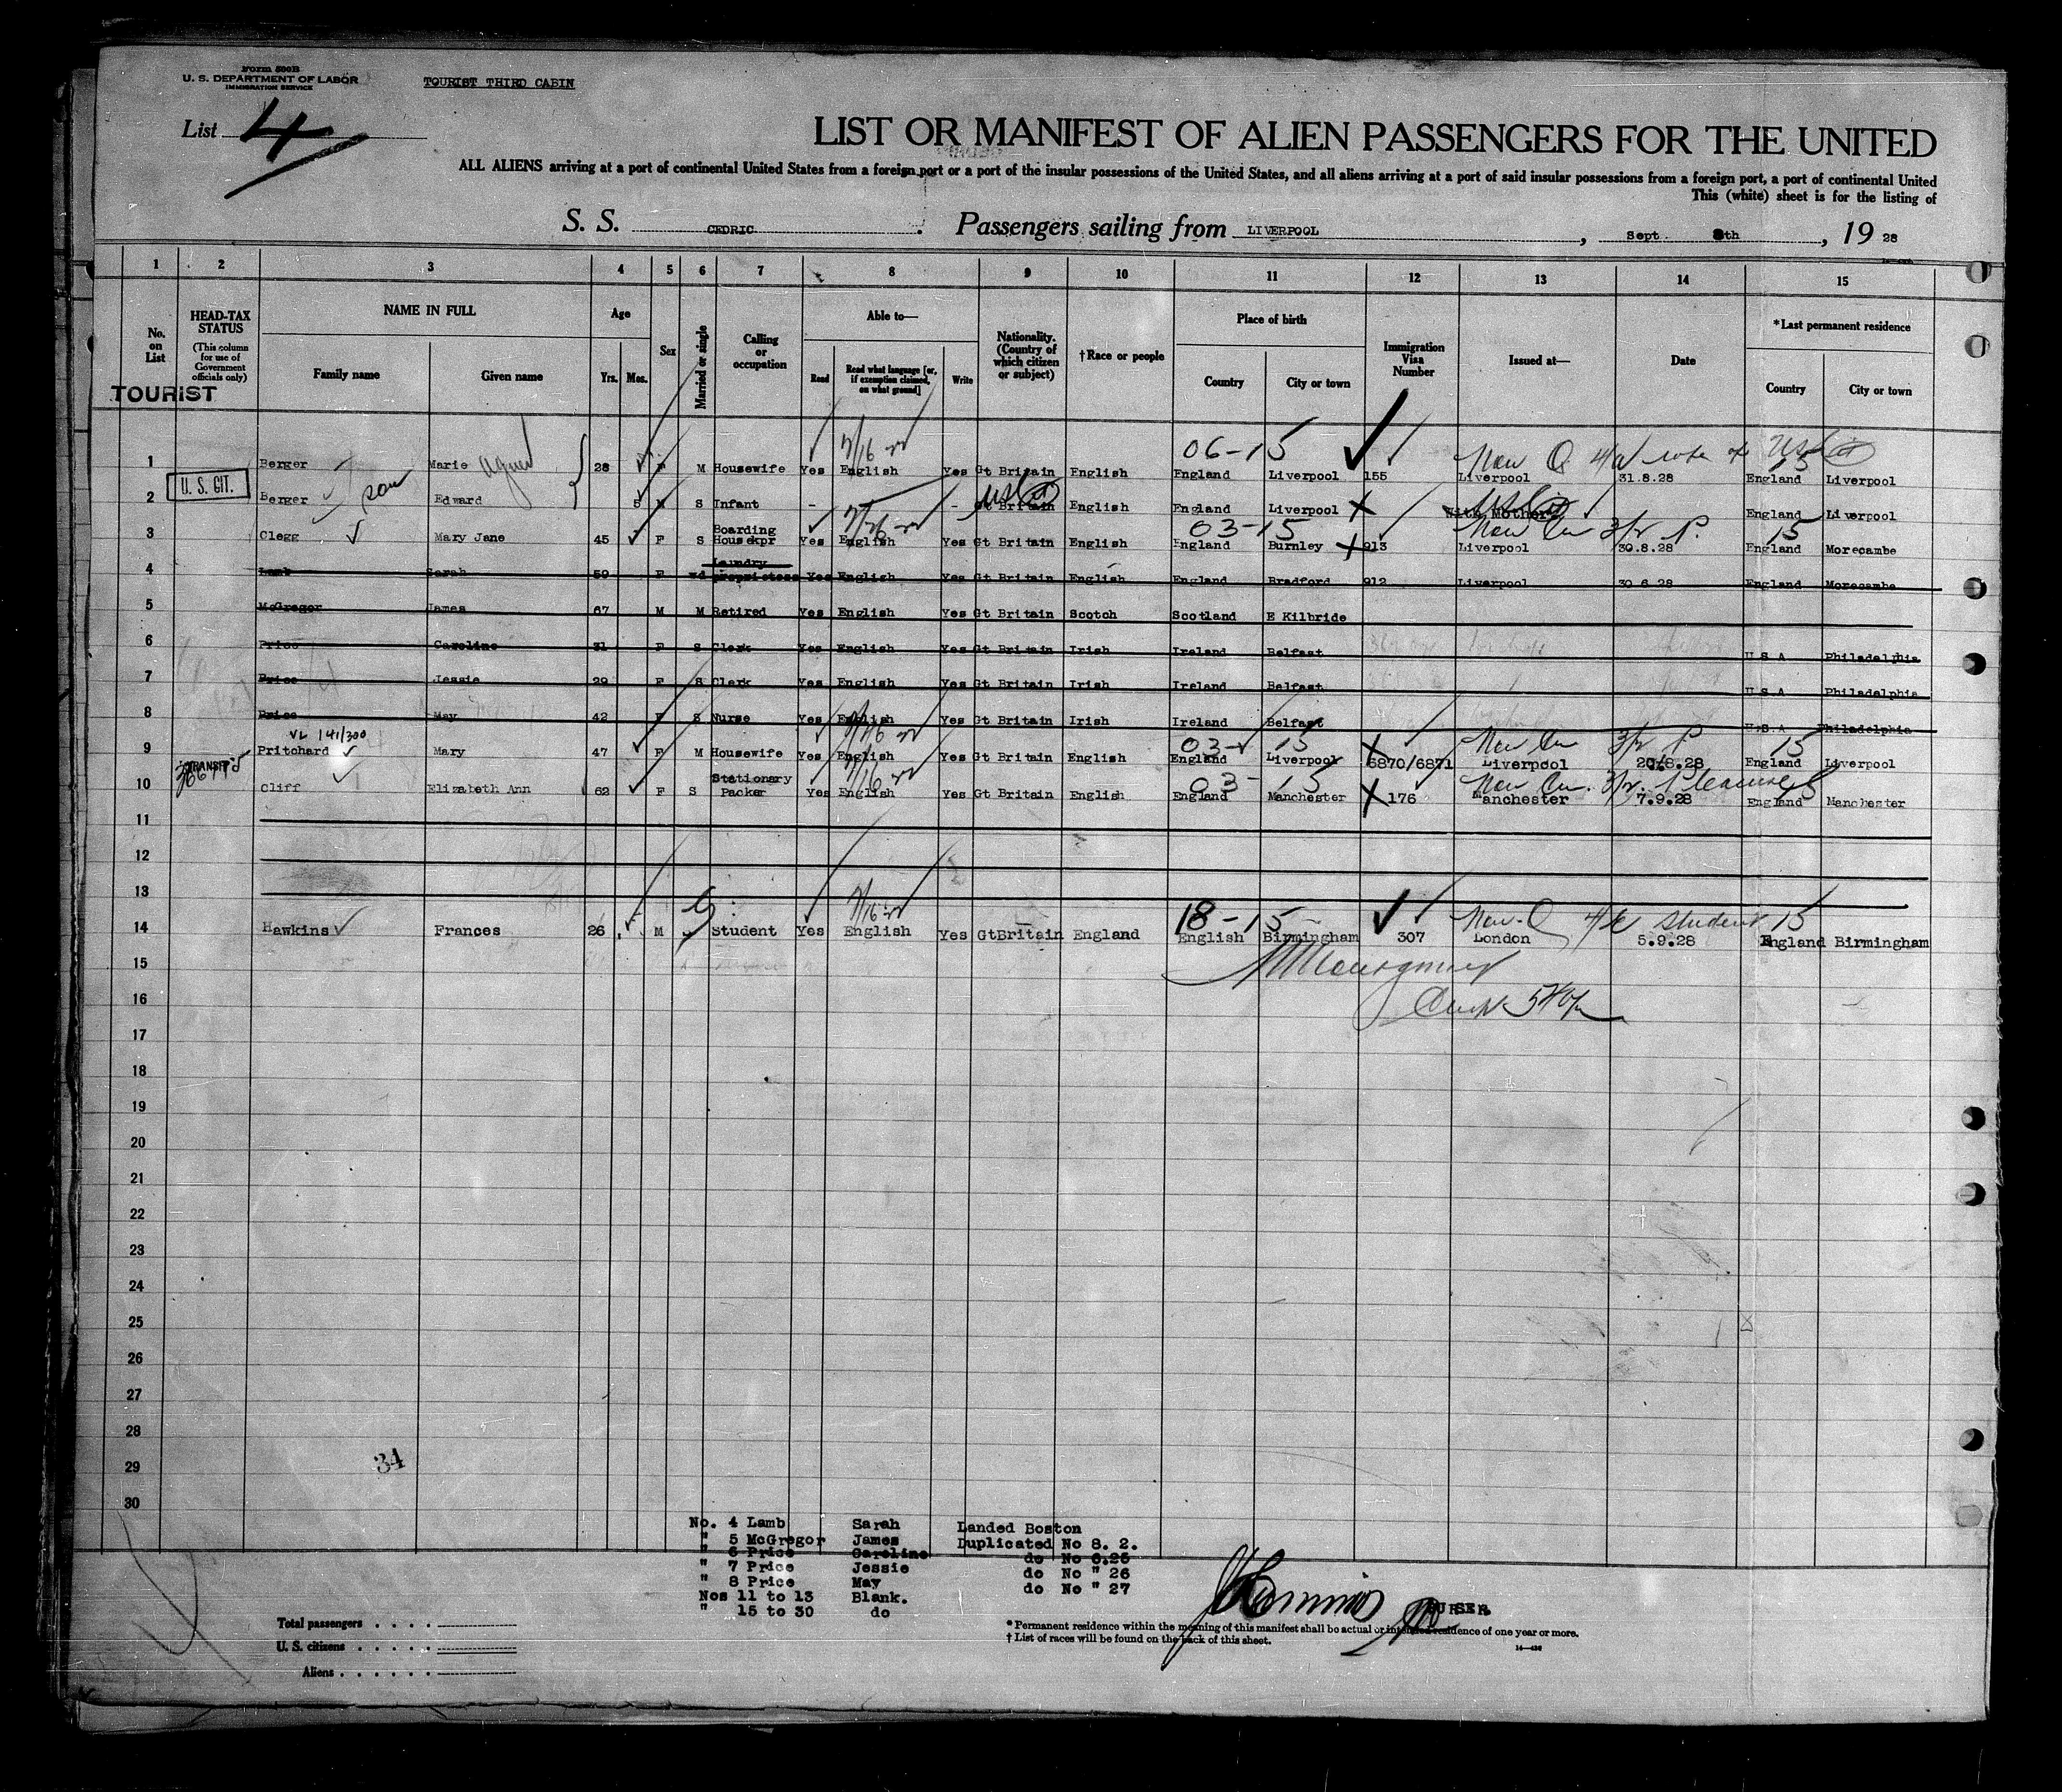 Form 500B
U. S. DEPARTMENT OF LABOR
IMMIGRATION SERVICE
TOURIST THIRD CABIN
List 4
LIST OR MANIFEST OF ALIEN PASSENGERS FOR THE UNITED
ALL ALIENS arriving at a port of continental United States from a foreign port or a port of the insular possessions of the United States, and all aliens arriving at a port of said insular possessions from a foreign port, a port of continental United
This (white) sheet is for the listing of
S. S. CEDRIC. Passengers sailing from LIVERPOOL, Sept 8th, 19 28
1 2 3 4 5 6 7 8 9 10 11 12 13 14 15
No. on List
HEAD-TAX STATUS (This column for use of Government officials only)
NAME IN FULL Family name Given name
Age Yrs. Mos.
Sex
Married or single
Calling or occupation
Able to— Read Read what language [or, if exemption claimed, on what ground] Write
Nationality. (Country of which citizen or subject)
†Race or people
Place of birth Country City or town
Immigration Visa Number
Issued at—
Date
*Last permanent residence Country City or town
TOURIST
7/16 06-15
1 Berger Marie Agnes 28 F M Housewife Yes English Yes Gt Britain English England Liverpool 155 Liverpool 31.8.28 England Liverpool
U. S. CIT.
2 Berger son Edward 5 M S Infant - - Gt Britain English England Liverpool With Mother England Liverpool
03-15 15
3 Clegg Mary Jane 45 F S Boarding Housekpr Yes English Yes Gt Britain English England Burnley 913 Liverpool 30.8.28 England Morecambe
4 Lamb Sarah 59 F wd Laundry proprietess Yes English Yes Gt Britain English England Bradford 912 Liverpool 30.6.28 England Morecambe
5 McGregor James 67 M M Retired Yes English Yes Gt Britain Scotch Scotland E Kilbride
6 Price Caroline 31 F S Clerk Yes English Yes Gt Britain Irish Ireland Belfast U S A Philadelphia
7 Price Jessie 29 F S Clerk Yes English Yes Gt Britain Irish Ireland Belfast U S A Philadelphia
8 Price May 42 F S Nurse Yes English Yes Gt Britain Irish Ireland Belfast U.S.A Philadelphia
VL 141/300 03- 15 15
9 Pritchard Mary 47 F M Housewife Yes English Yes Gt Britain English England Liverpool 6870/6871 Liverpool 20.8.28 England Liverpool
TRANSIT 03- 15
10 Cliff Elizabeth Ann 62 F S Stationary Packer Yes English Yes Gt Britain English England Manchester 176 Manchester 7.9.28 England Manchester
11
12
13
7/16 18-15 student 15
14 Hawkins Frances 26 M S Student Yes English Yes GtBritain England English Birmingham 307 London 5.9.28 England Birmingham
15
16
17
18
19
20
21
22
23
24
25
26
27
28
29
30
34
No. 4 Lamb Sarah Landed Boston
" 5 McGregor James Duplicated No 8. 2.
" 6 Price Caroline do No 6.25
" 7 Price Jessie do No " 26
" 8 Price May do No " 27
Nos 11 to 13 Blank.
" 15 to 30 do
PURSER
Total passengers
U. S. citizens
Aliens
* Permanent residence within the meaning of this manifest shall be actual or intended residence of one year or more.
† List of races will be found on the back of this sheet.